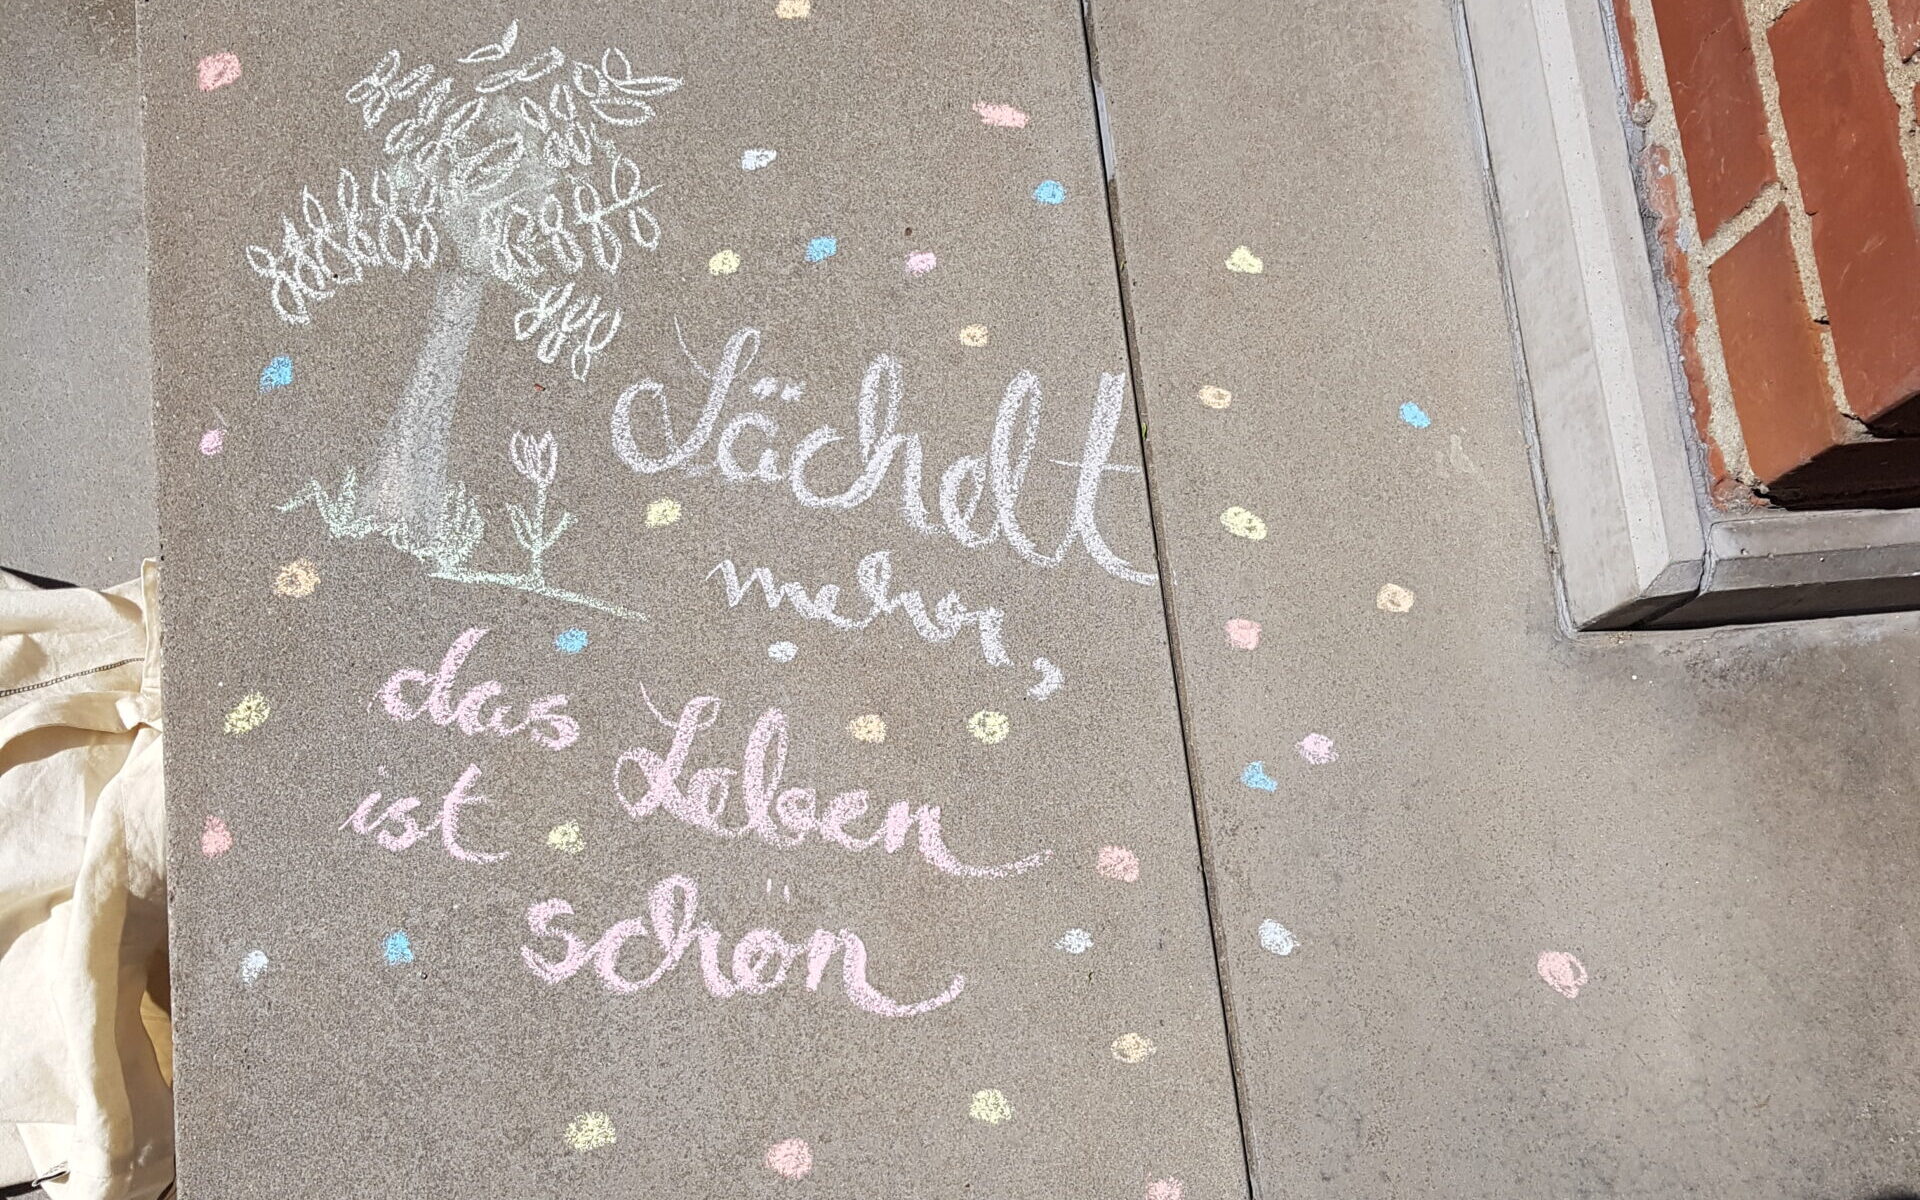 Lächelt
mehr,
das Leben
ist
schön